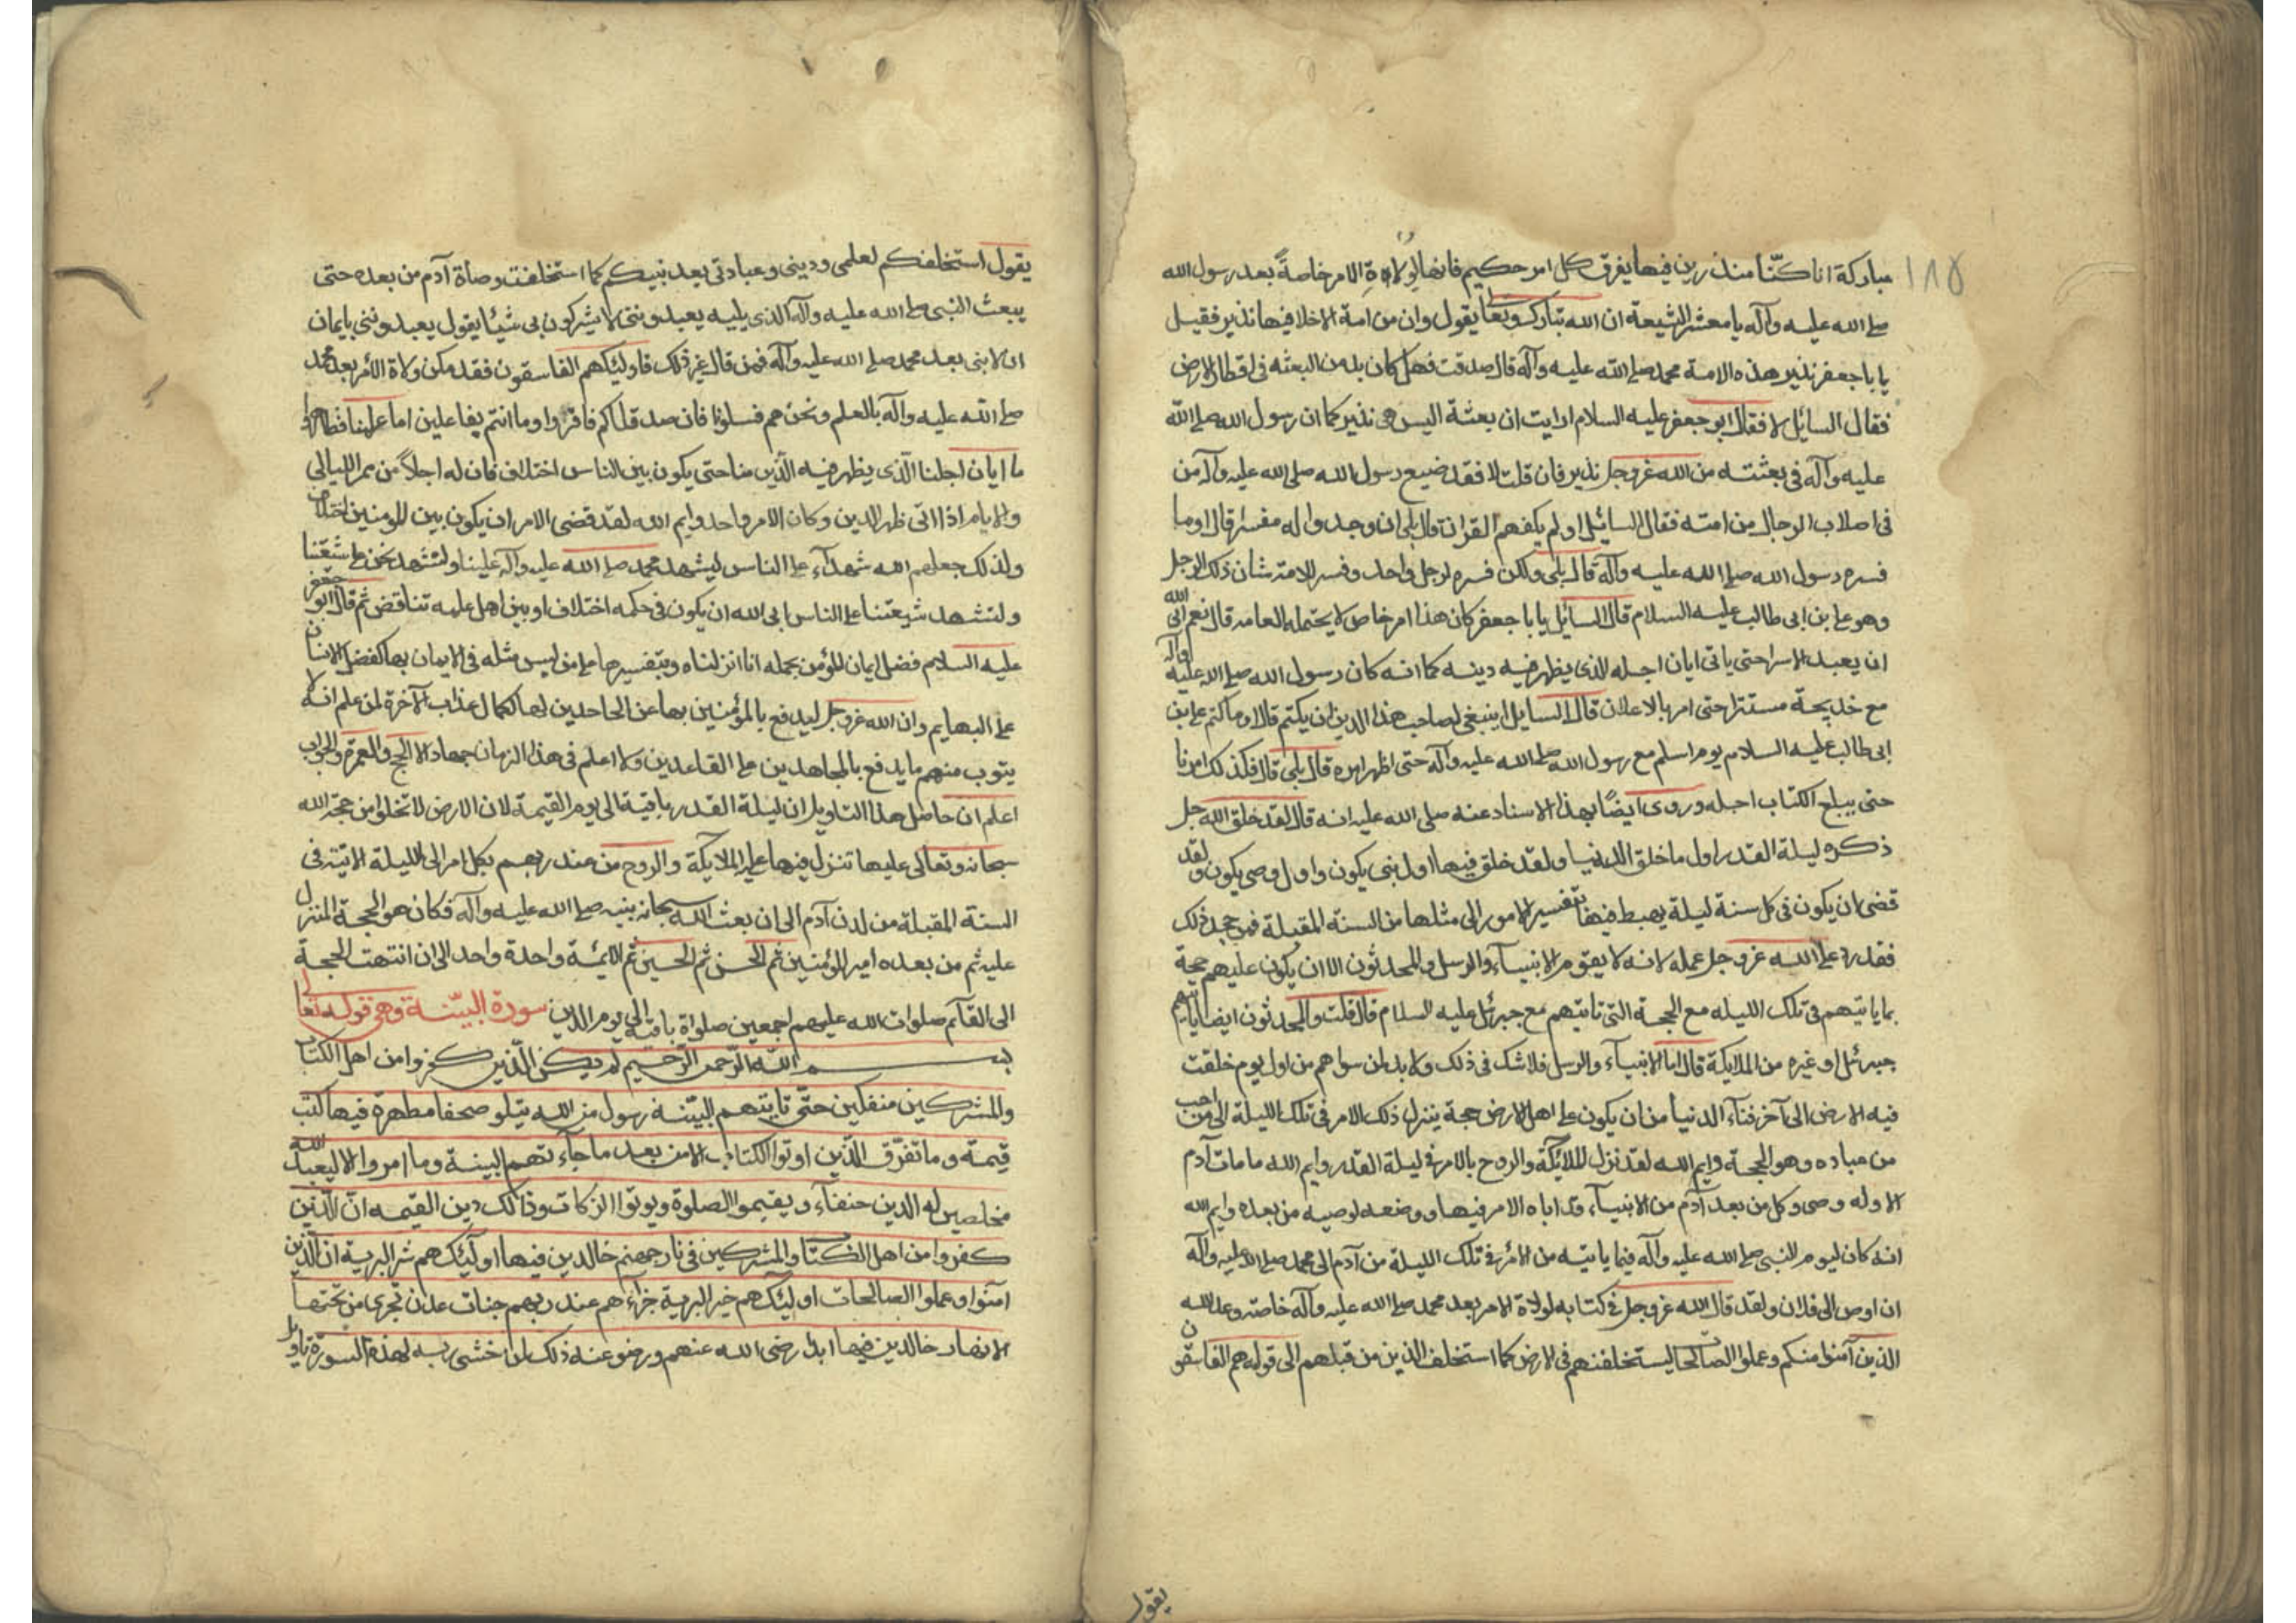 ١٨٥
مباركة انا كنّا منذرين فيها يفرق كل امر حكيم فانها لولاة الامر خاصةً بعد رسول الله
صلى الله عليه وآله يا معشر الشيعة ان الله تبارك وتعالى يقول وان من امة الا خلا فيها نذير فقيل
يا با جعفر نذير هذه الامة محمد صلى الله عليه وآله قال صدقت فهل كان بد من البعثه فى اقطار الارض
فقال السايل لا فقال ابو جعفر عليه السلام ارايت ان بعثة اليس هى نذير كما ان رسول الله صلى الله
عليه وآله فى بعثته من الله عز وجل نذير فان قلت لا فقد ضيع رسول الله صلى الله عليه وآله من
فى اصلاب الرجال من امته فقال السائل اولم يكفهم القران قال بلى ان وجدوا له مفسرا قال اوما
فسره رسول الله صلى الله عليه وآله قال بلى ولكن فسره لرجل واحد وفسر للامة شان ذلك الرجل
وهو على بن ابى طالب عليه السلام قال السائل يا با جعفر كان هذا امر خاص لا يحتمله العامه قال نعم ابى الله
ان يعبد الا سرا حتى ياتى ايان اجله الذى يظهر فيه دينه كما انه كان رسول الله صلى الله عليه وآله
مع خديجة مستترا حتى امر بالاعلان قال السايل اينبغى لصاحب هذا الدين ان يكتم قال اوما كتم على بن
ابى طالب عليه السلام يوم اسلم مع رسول الله صلى الله عليه وآله حتى اظهر امره قال بلى قال فكذلك امرنا
حتى يبلغ الكتاب اجله وروى ايضًا بهذا الاسناد عنه صلى الله عليه انه قال لقد خلق الله جل
ذكره ليلة القدر اول ما خلق الدنيا ولقد خلق فيها اول نبى يكون واول وصى يكون ولقد
قضى ان يكون فى كل سنة ليلة يهبط فيها بتفسير الامور الى مثلها من السنة المقبلة فمن جحد ذلك
فقد رد على الله عز وجل علمه لانه لا يقوم الانبياء والرسل والمحدثون الا ان يكون عليهم حجة
بما ياتيهم فى تلك الليله مع الحجة التى تاتيهم مع جبرئل عليه السلام قال قلت والمحدثون ايضا ياتيهم
جبرئل او غيره من الملايكة قال اما الانبياء والرسل فلا شك فى ذلك ولا بد لمن سواهم من اول يوم خلقت
فيه الارض الى آخر فناء الدنيا من ان يكون على اهل الارض حجة ينزل ذلك الامر فى تلك الليلة الى من احب
من عباده وهو الحجة وايم الله لقد نزل الملائكة والروح بالامر فى ليلة القدر وايم الله ما مات آدم
الا وله وصى وكل من بعد آدم من الانبياء قد اباه الامر فيها ووضعه لوصيه من بعده وايم الله
انه كان ليوم النبى صلى الله عليه وآله فيما ياتيه من الامر فى تلك الليلة من آدم الى محمد صلى الله عليه وآله
ان اوص الى فلان ولقد قال الله عز وجل فى كتابه لولاة الامر بعد محمد صلى الله عليه وآله خاصة وعد الله
الذين آمنوا منكم وعملوا الصالحات ليستخلفنهم فى الارض كما استخلف الذين من قبلهم الى قوله هم الفاسقون
يقول
يقول استخلفكم لعلمى ودينى وعبادتى بعد نبيكم كما استخلفت وصاة آدم من بعده حتى
يبعث النبى صلى الله عليه وآله الذى يليه يعبدوننى لا يشركون بى شيئا يقول يعبدوننى بايمان
ان لا نبى بعد محمد صلى الله عليه وآله فمن قال غير ذلك فاولئك هم الفاسقون فقد مكن ولاة الامر بعد محمد
صلى الله عليه وآله بالعلم ونحن هم فسلونا فان صدقناكم فاقروا وما انتم بفاعلين اما علمنا فظاهر
ما ايان اجلنا الذى يظهر فيه الدين منا حتى يكون بين الناس اختلاف فان له اجلاً من ممر الليالى
والايام اذا اتى ظهر الدين وكان الامر واحد وايم الله لقد قضى الامر ان يكون بين المومنين اختلاف
ولذلك جعلهم الله شهدآء على الناس ليشهد محمد صلى الله عليه وآله علينا ولنشهد نحن على شيعتنا
ولتشهد شيعتنا على الناس ابى الله ان يكون فى حكمه اختلاف او بين اهل علمه تناقض ثم قال ابو جعفر
عليه السلام فضل ايمان المؤمن بجمله انا انزلناه وبتفسيرها على من ليس مثله فى الايمان بها كفضل الانسان
على البهايم وان الله عز وجل ليدفع بالمؤمنين بها عن الجاحدين لها لكمال عذاب الآخرة لمن علم انه لا
يتوب منهم ما يدفع بالمجاهدين على القاعدين ولا اعلم فى هذا الزمان جهاد الا الحج والعمرة والجواب
اعلم ان حاصل هذا التاويل ان ليلة القدر باقية الى يوم القيمة لان الارض لا تخلو من حجة الله
سبحانه وتعالى عليها تنزل فيها عليه الملايكة والروح من عند ربهم بكل امر الى الليلة الاتية فى
السنة المقبلة من لدن آدم الى ان بعث الله سبحانه نبيه صلى الله عليه وآله فكان هو الحجة المنزل
عليه ثم من بعده امير المؤمنين ثم الحسن ثم الحسين ثم الائمة واحدة واحد الى ان انتهت الحجة
الى القآئم صلوات الله عليهم اجمعين صلواة باقية الى يوم الدين سورة البيّنة وهى قوله تعالى
بسم الله الرّحمن الرّحيم لم يكن الّذين كفروا من اهل الكتاب
والمشركين منفكين حتّى تاتيهم البيّنة رسول من الله يتلو صحفا مطهرة فيها كتب
قيمة وما تفرّق الّذين اوتوا الكتاب الا من بعد ما جآءتهم البينة وما امروا الا ليعبدوا الله
مخلصين له الدين حنفآء ويقيموا الصلوة ويوتوا الزكات وذالك دين القيمه انّ الّذين
كفروا من اهل الكتاب والمشركين فى نار جهنم خالدين فيها اولئك هم شر البرية ان الذين
آمنوا وعملوا الصالحات اولئك هم خير البرية جزاءهم عند ربهم جنات عدن تجرى من تحتها
الانهار خالدين فيها ابدا رضى الله عنهم ورضوا عنه ذلك لمن خشى ربه لهذه السورة تاويل